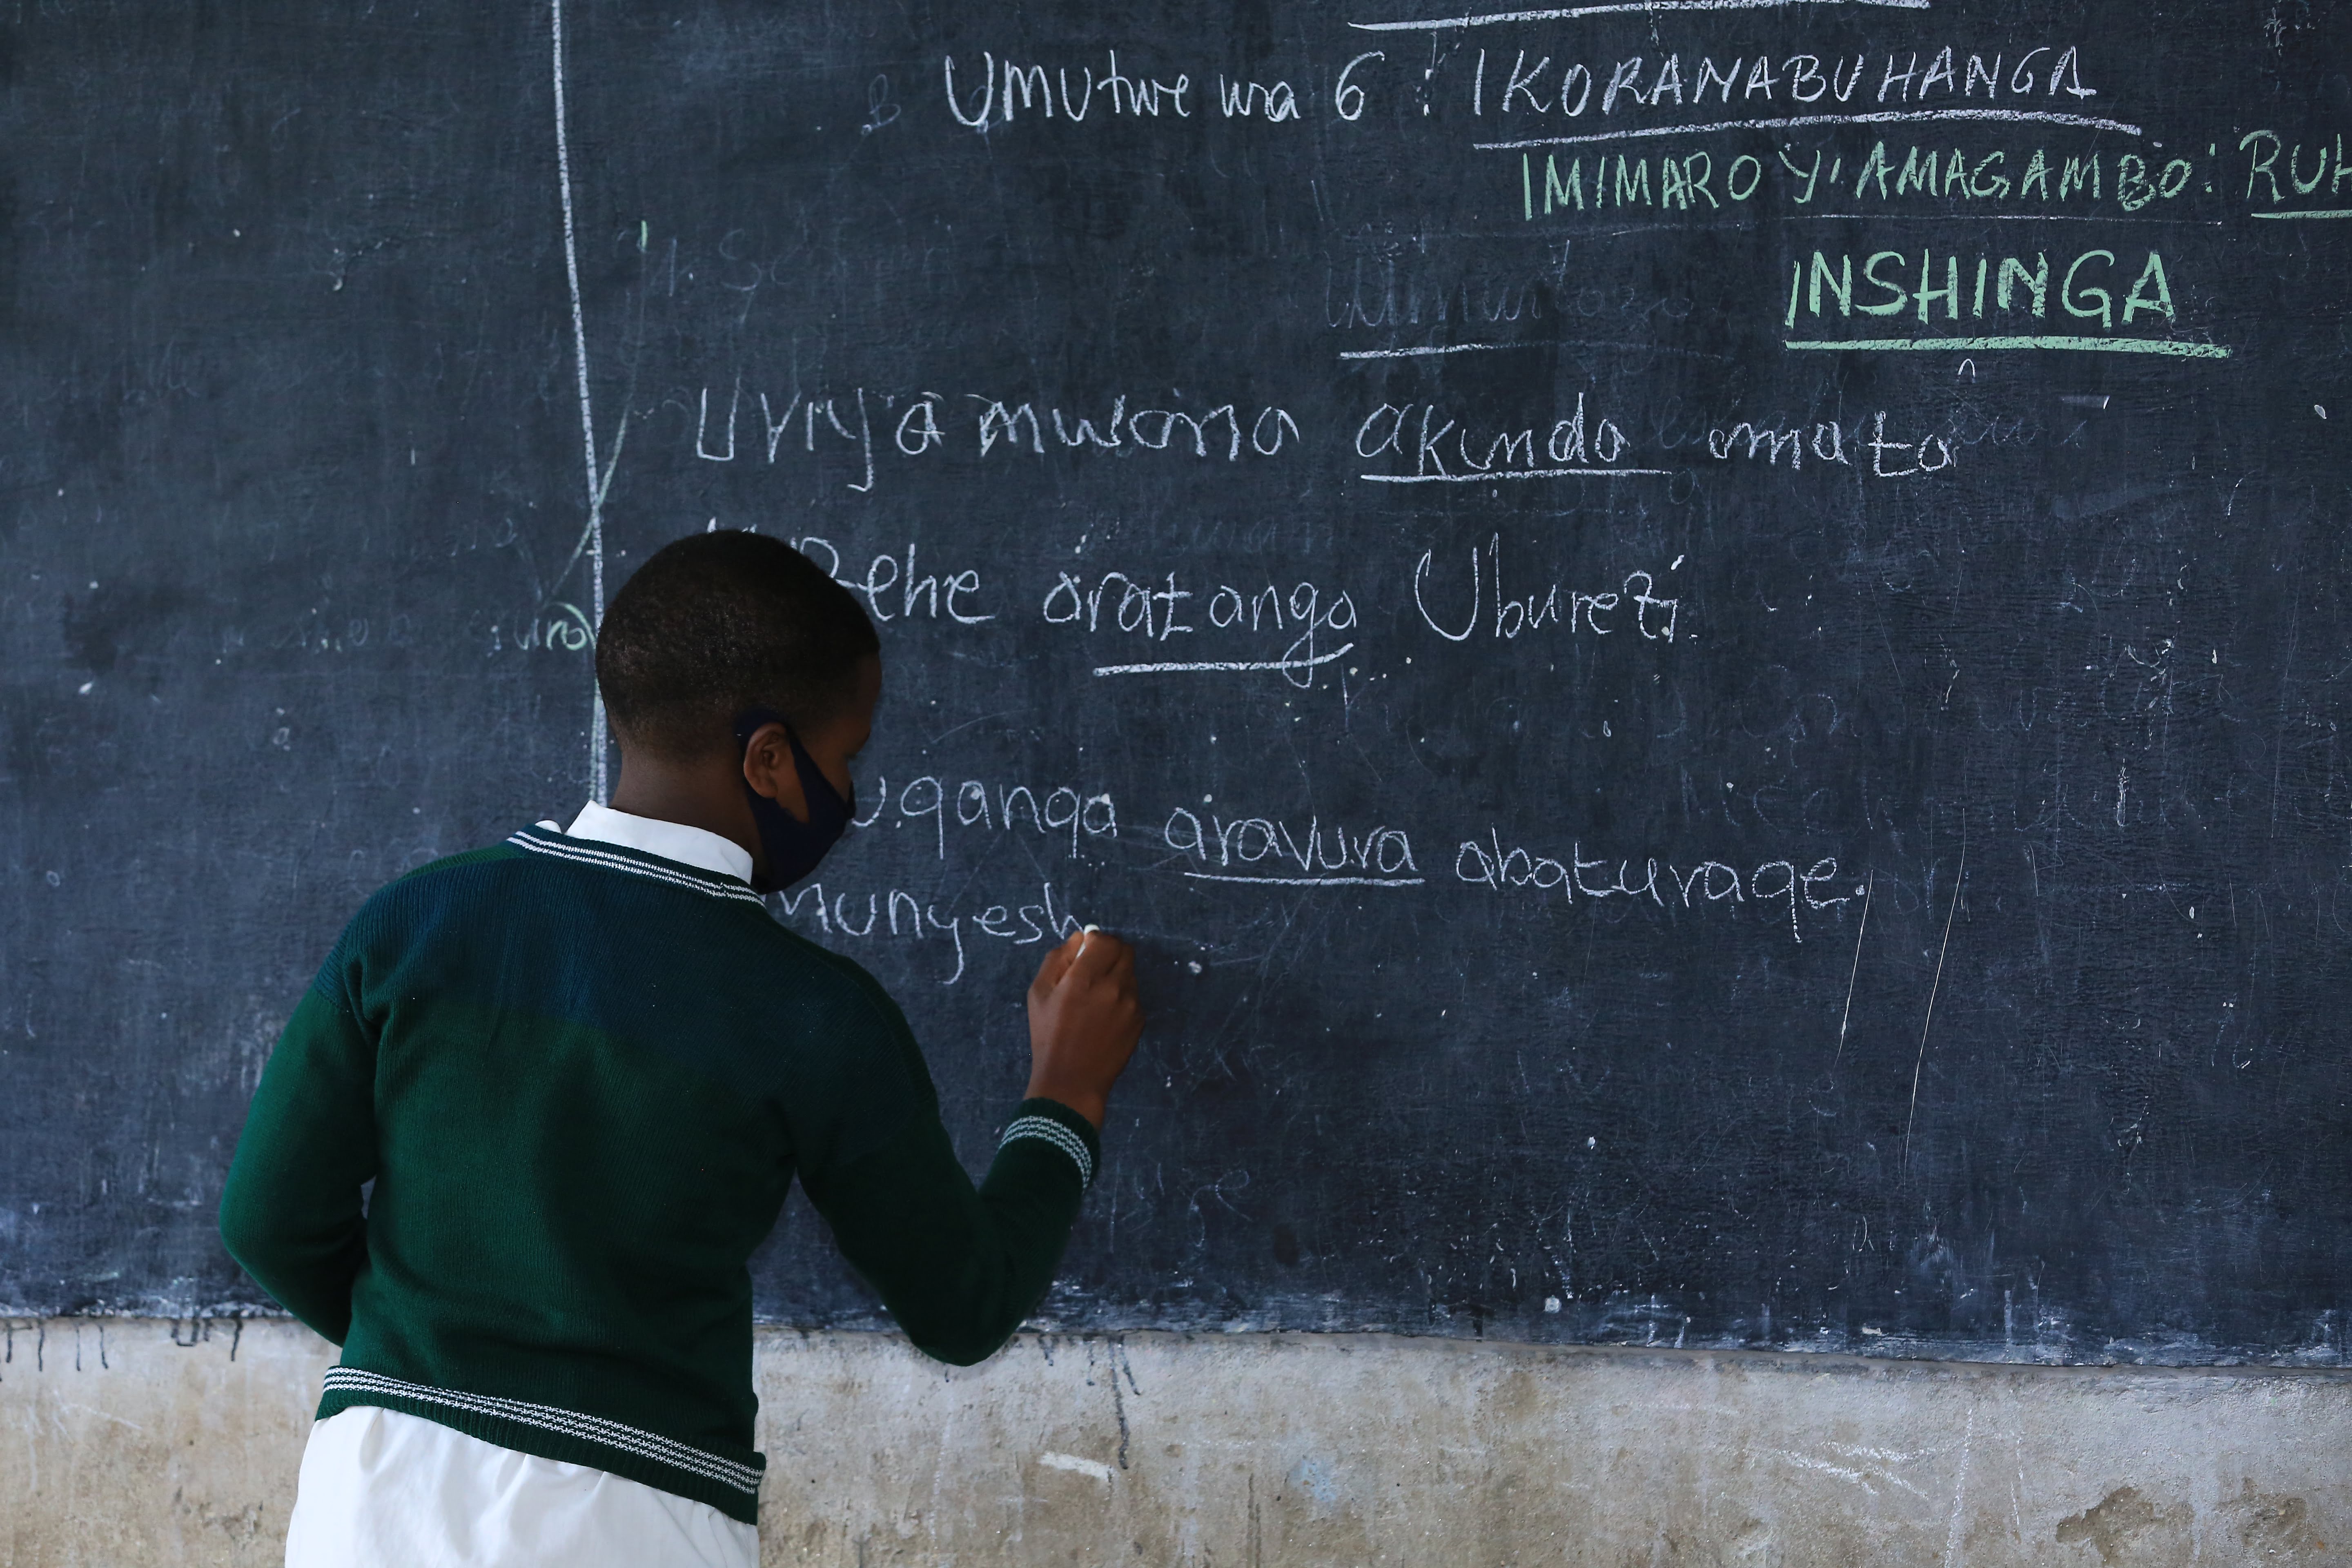 Umutwe wa 6 : IKORANABUHANGA
IMIMARO Y'AMAGAMBO: RUH
INSHINGA
Uriya mwana akunda amata
Rehe aratanga Uburezi.
uganga aravura abaturage.
munyesh